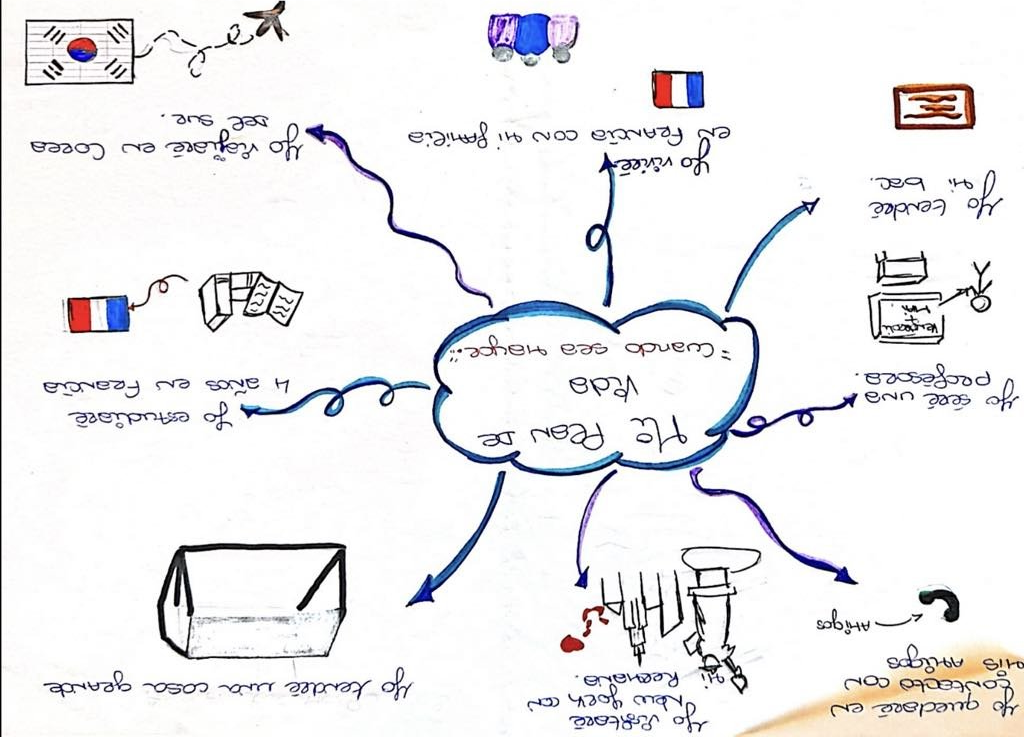 Yo quedaré en
contacto con
mis amigos
Amigos
Yo visitaré
New York con
mi hermana.
Yo tendré una casa grande
Mi Plan de
Vida
"Cuando sea mayor.."
Yo seré una
professora.
Yo estudiaré
4 años en Francia
Yo tendré
mi bac.
Yo viviré
en Francia con mi familia
Yo viajaré en Corea
del sur.